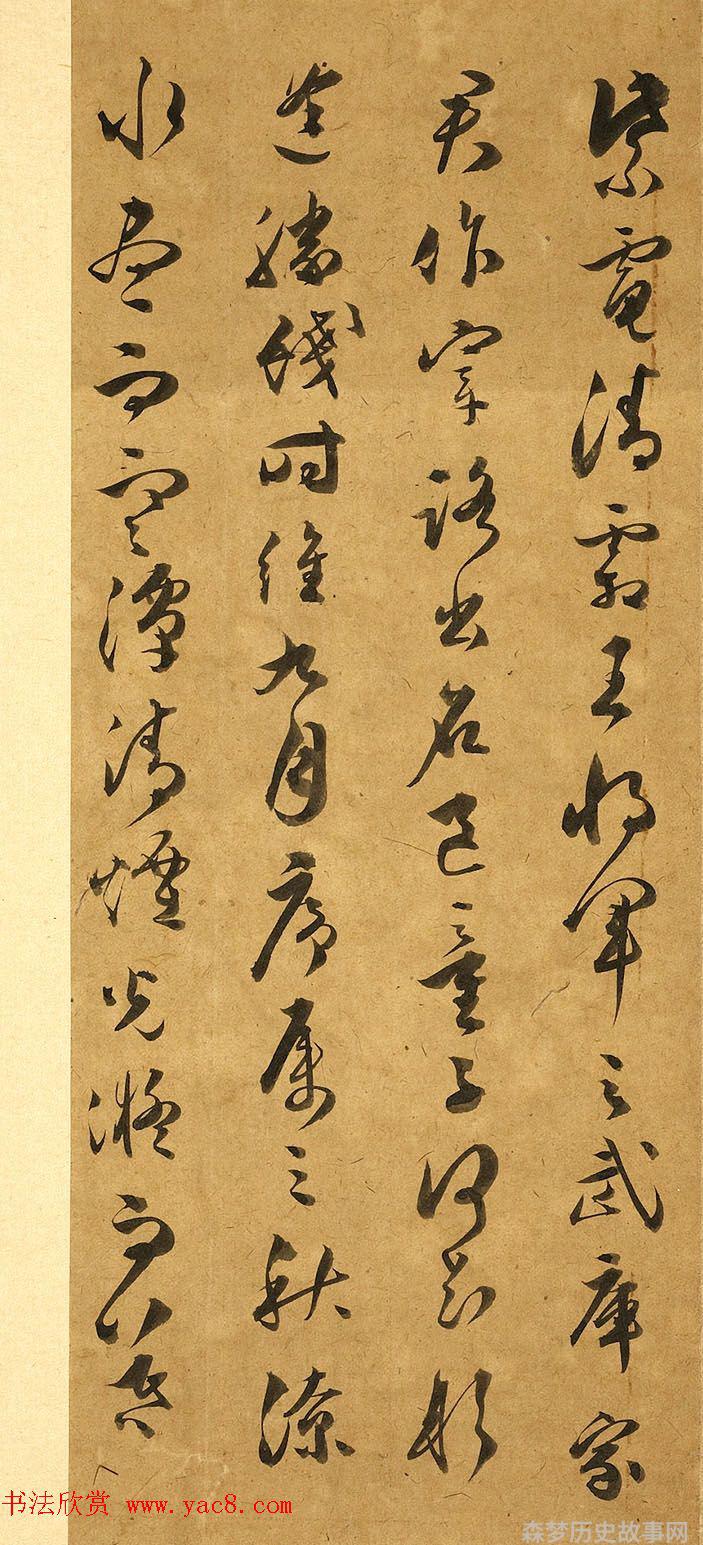 紫電清霜王將軍之武庫家
君作宰路出名區童子何知躬
逢勝餞時維九月序屬三秋潦
水盡而寒潭清煙光凝而暮
书法欣赏 www.yac8.com
森梦历史故事网